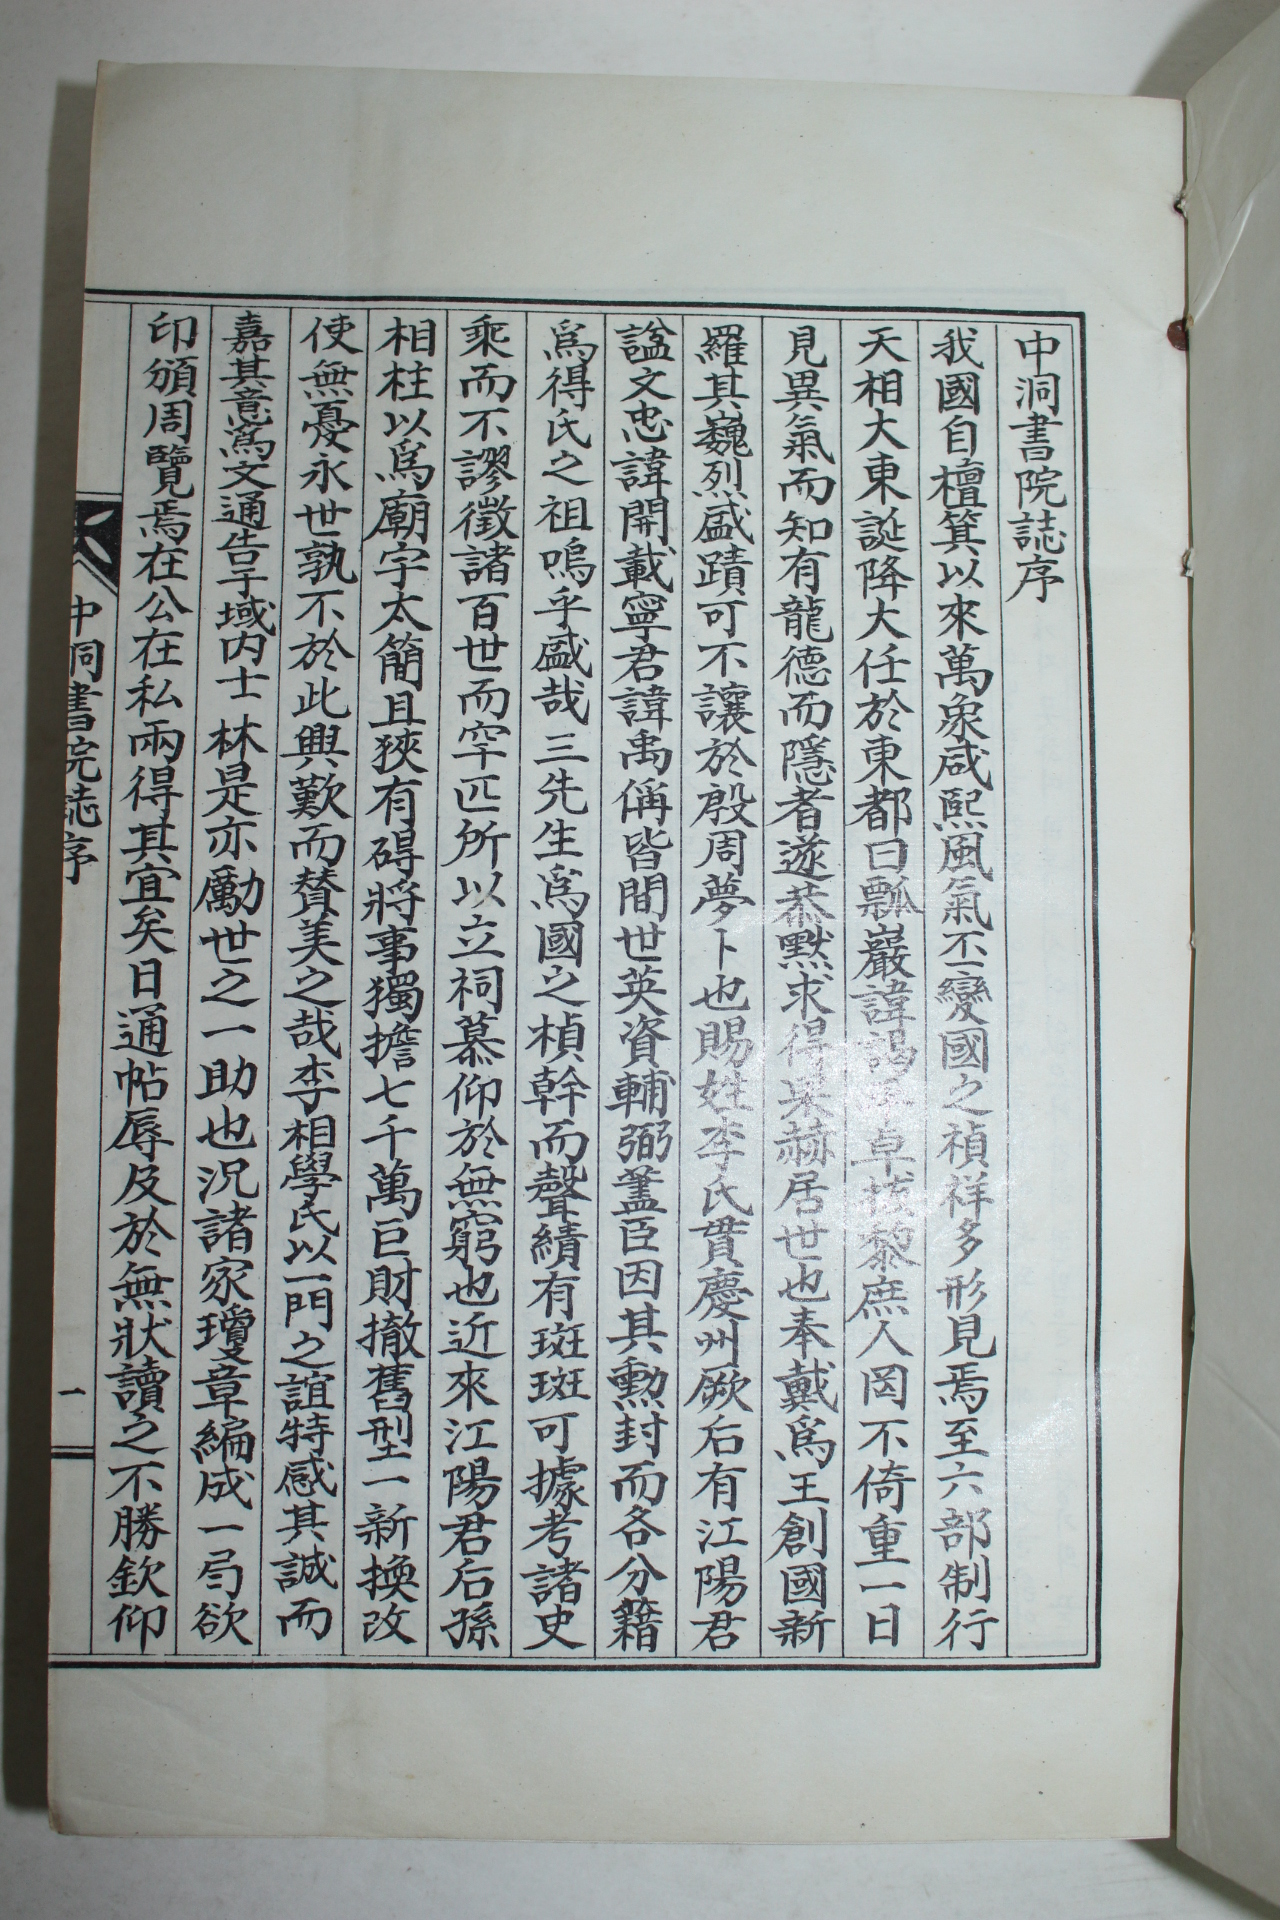 中洞書院誌序
我國自檀箕以來萬象咸熙風氣不變國之禎祥多形見焉至六部制行
天相大東誕降大任於東都曰瓢巖諱謁平卓拔黎庶人罔不倚重一日
見異氣而知有龍德而隱者遂恭默求得果赫居世也奉戴爲王創國新
羅其巍烈盛蹟可不讓於殷周夢卜也賜姓李氏貫慶州厥后有江陽君
諡文忠諱開載寧君諱禹偁皆間世英資輔弼藎臣因其勳封而各分籍
爲得氏之祖嗚乎盛哉三先生爲國之楨幹而聲績有斑斑可據考諸史
乘而不謬徵諸百世而罕匹所以立祠慕仰於無窮也近來江陽君后孫
相柱以爲廟宇太簡且狹有碍將事獨擔七千萬巨財撤舊型一新換改
使無憂永世孰不於此興歎而賛美之哉李相學氏以一門之誼特感其誠而
嘉其意爲文通告于域內士林是亦勵世之一助也況諸家瓊章編成一局欲
印頒周覽焉在公在私兩得其宜矣日通帖辱及於無狀讀之不勝欽仰
中洞書院誌序
一